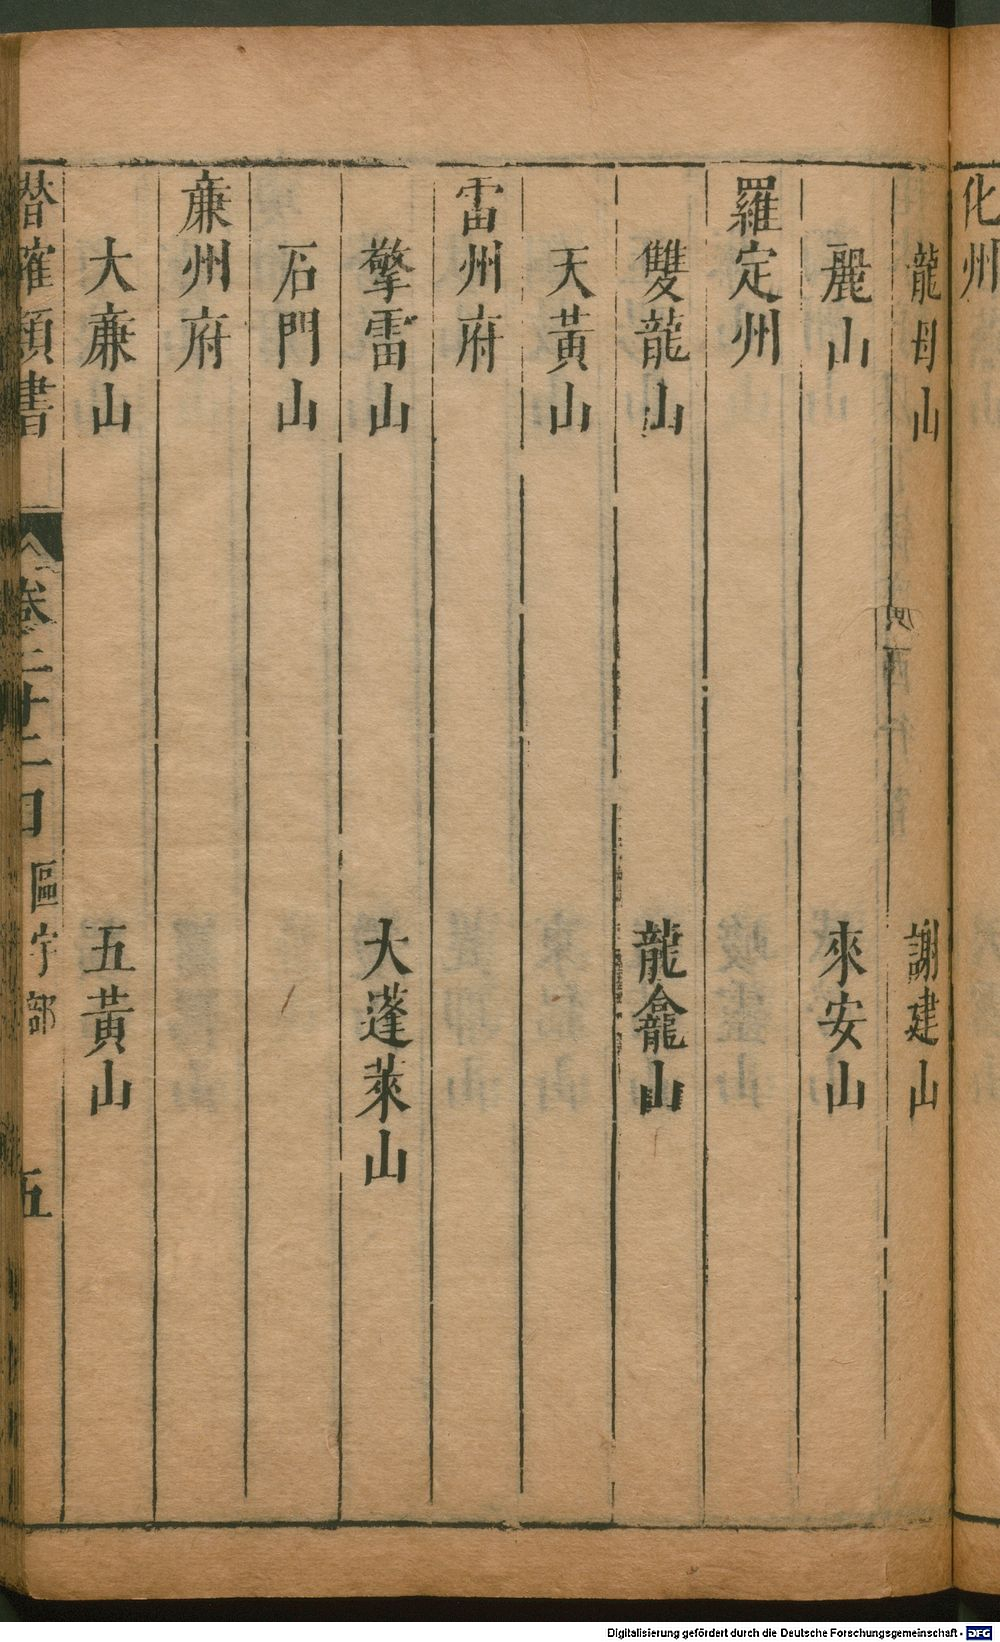 化州
龍母山 謝建山
麗山 來安山
羅定州
雙龍山 龍龕山
天黃山
雷州府
擎雷山 大蓬萊山
石門山
廉州府
大廉山 五黃山
潛確類書 卷二十二 區宇部 五
Digitalisierung gefördert durch die Deutsche Forschungsgemeinschaft - DFG